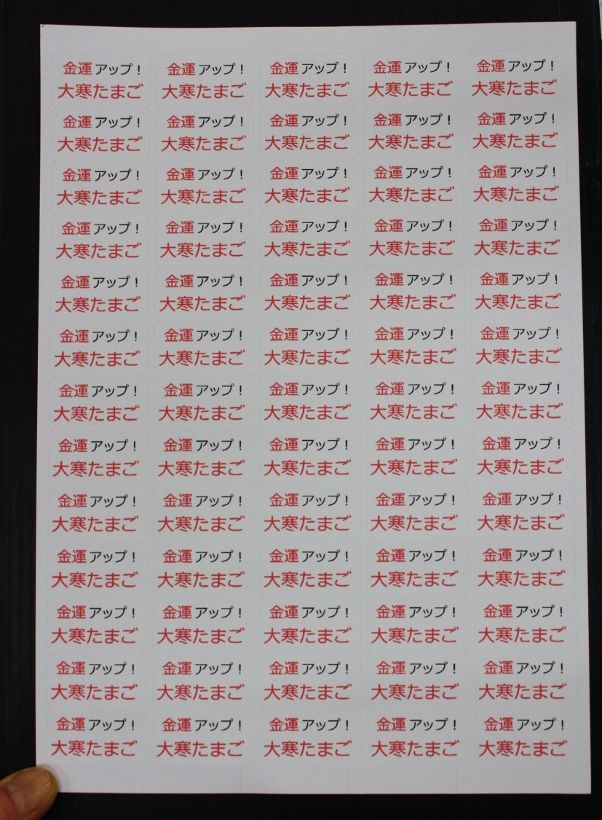 金運アップ! 金運アップ! 金運アップ! 金運アップ! 金運アップ!
大寒たまご 大寒たまご 大寒たまご 大寒たまご 大寒たまご
金運アップ! 金運アップ! 金運アップ! 金運アップ! 金運アップ!
大寒たまご 大寒たまご 大寒たまご 大寒たまご 大寒たまご
金運アップ! 金運アップ! 金運アップ! 金運アップ! 金運アップ!
大寒たまご 大寒たまご 大寒たまご 大寒たまご 大寒たまご
金運アップ! 金運アップ! 金運アップ! 金運アップ! 金運アップ!
大寒たまご 大寒たまご 大寒たまご 大寒たまご 大寒たまご
金運アップ! 金運アップ! 金運アップ! 金運アップ! 金運アップ!
大寒たまご 大寒たまご 大寒たまご 大寒たまご 大寒たまご
金運アップ! 金運アップ! 金運アップ! 金運アップ! 金運アップ!
大寒たまご 大寒たまご 大寒たまご 大寒たまご 大寒たまご
金運アップ! 金運アップ! 金運アップ! 金運アップ! 金運アップ!
大寒たまご 大寒たまご 大寒たまご 大寒たまご 大寒たまご
金運アップ! 金運アップ! 金運アップ! 金運アップ! 金運アップ!
大寒たまご 大寒たまご 大寒たまご 大寒たまご 大寒たまご
金運アップ! 金運アップ! 金運アップ! 金運アップ! 金運アップ!
大寒たまご 大寒たまご 大寒たまご 大寒たまご 大寒たまご
金運アップ! 金運アップ! 金運アップ! 金運アップ! 金運アップ!
大寒たまご 大寒たまご 大寒たまご 大寒たまご 大寒たまご
金運アップ! 金運アップ! 金運アップ! 金運アップ! 金運アップ!
大寒たまご 大寒たまご 大寒たまご 大寒たまご 大寒たまご
金運アップ! 金運アップ! 金運アップ! 金運アップ! 金運アップ!
大寒たまご 大寒たまご 大寒たまご 大寒たまご 大寒たまご
金運アップ! 金運アップ! 金運アップ! 金運アップ! 金運アップ!
大寒たまご 大寒たまご 大寒たまご 大寒たまご 大寒たまご